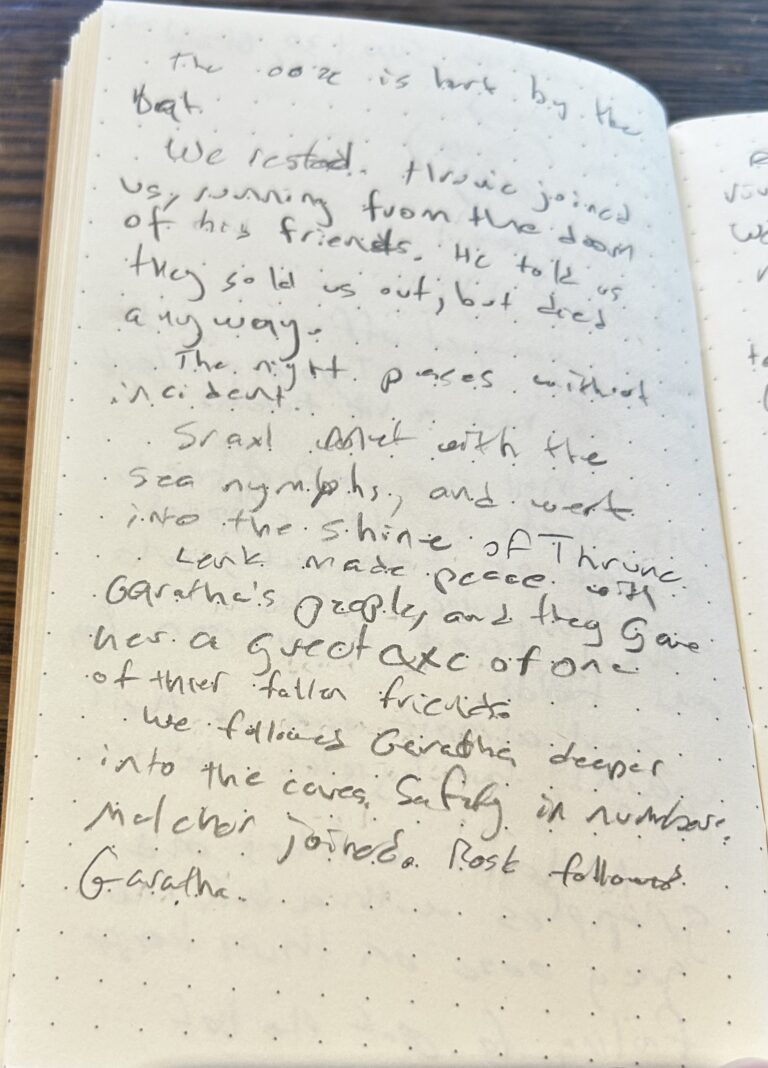 The ooze is hurt by the
bat.
We rested. Thrunc joined
us, running from the doom
of his friends. He told us
they sold us out, but died
anyway.
The night passes without
incident.
Sraxl met with the
sea nymphs, and went
into the shine of Thrunc
Lenk made peace with
Garatha's people, and they gave
her a great axe of one
of thier fallen friends.
We followed Garatha deeper
into the caves. Safety in numbers.
Melchor joined. Rosk followed
Garatha.